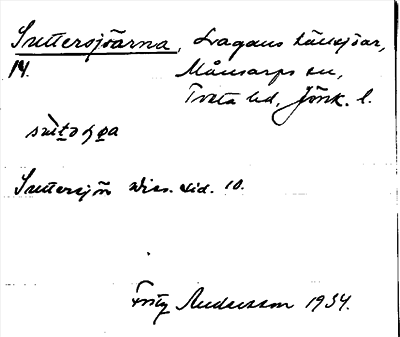 Suttersjöarna, Lagans källsjöar,
14. Månsarps sn,
Tveta hd, Jönk. l.
Suttersjön Wiss. tid. 10.
Fritz Andersson 1934.